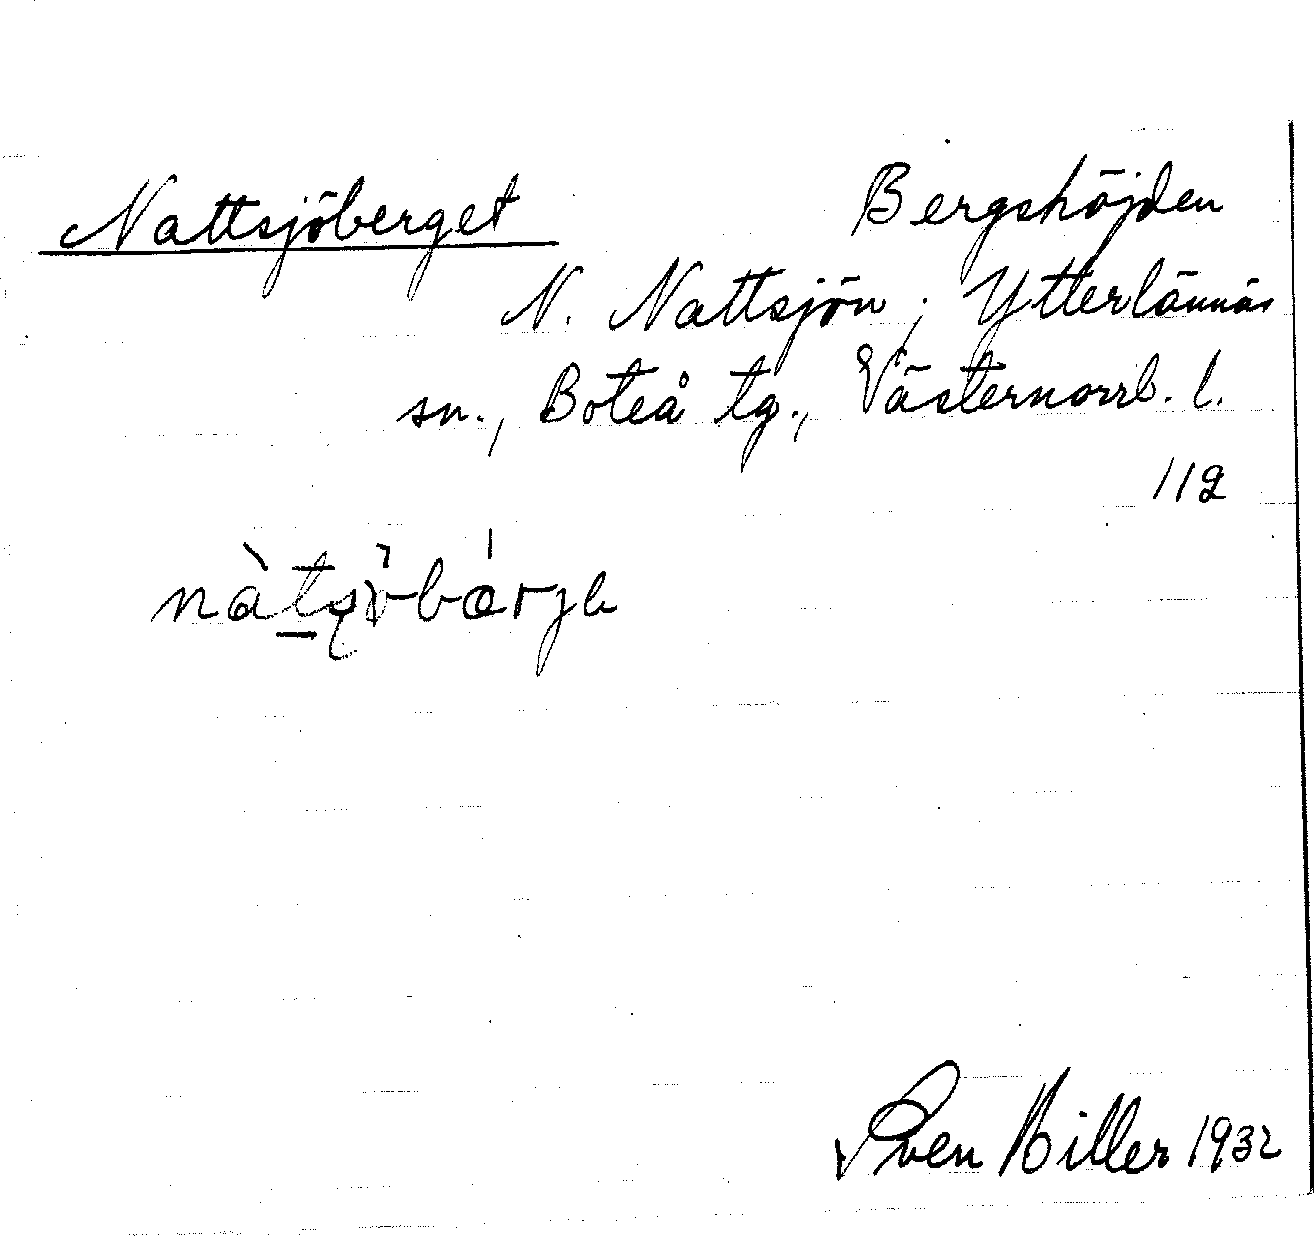 Nattsjöberget Bergshöjden
N. Nattsjön, Ytterlännäs
sn., Boteå tg., Västernorrl. l.
112
Sven Hiller 1932